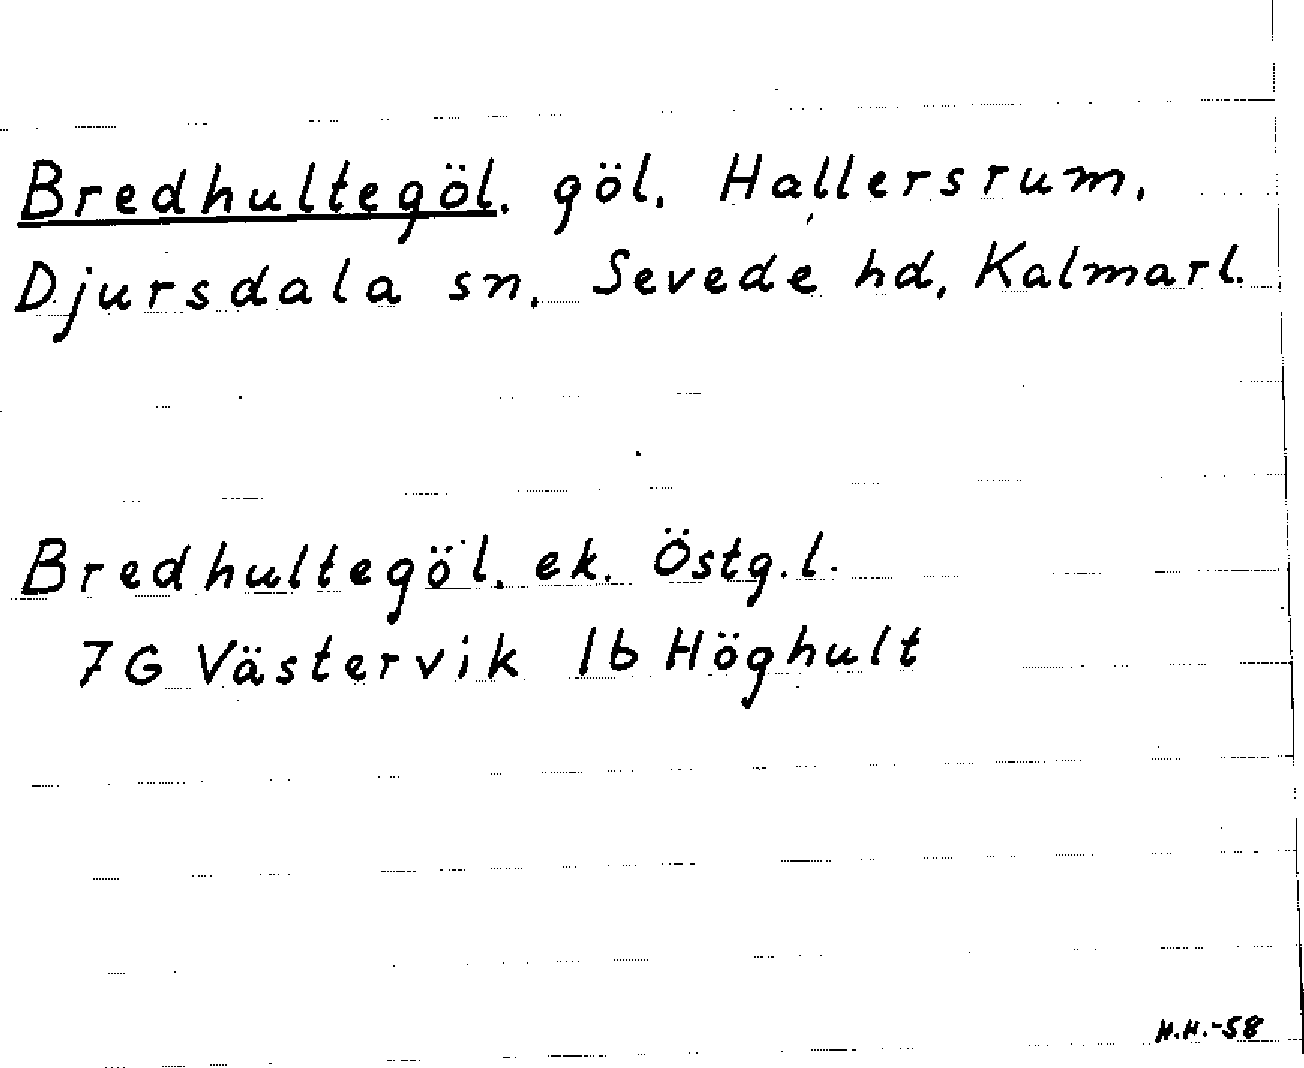 Bredhultegöl. göl. Hallersrum,
Djursdala sn. Sevede hd, Kalmarl.
Bredhultegöl. ek. Östg.l.
7G Västervik 1b Höghult
H.H.-58